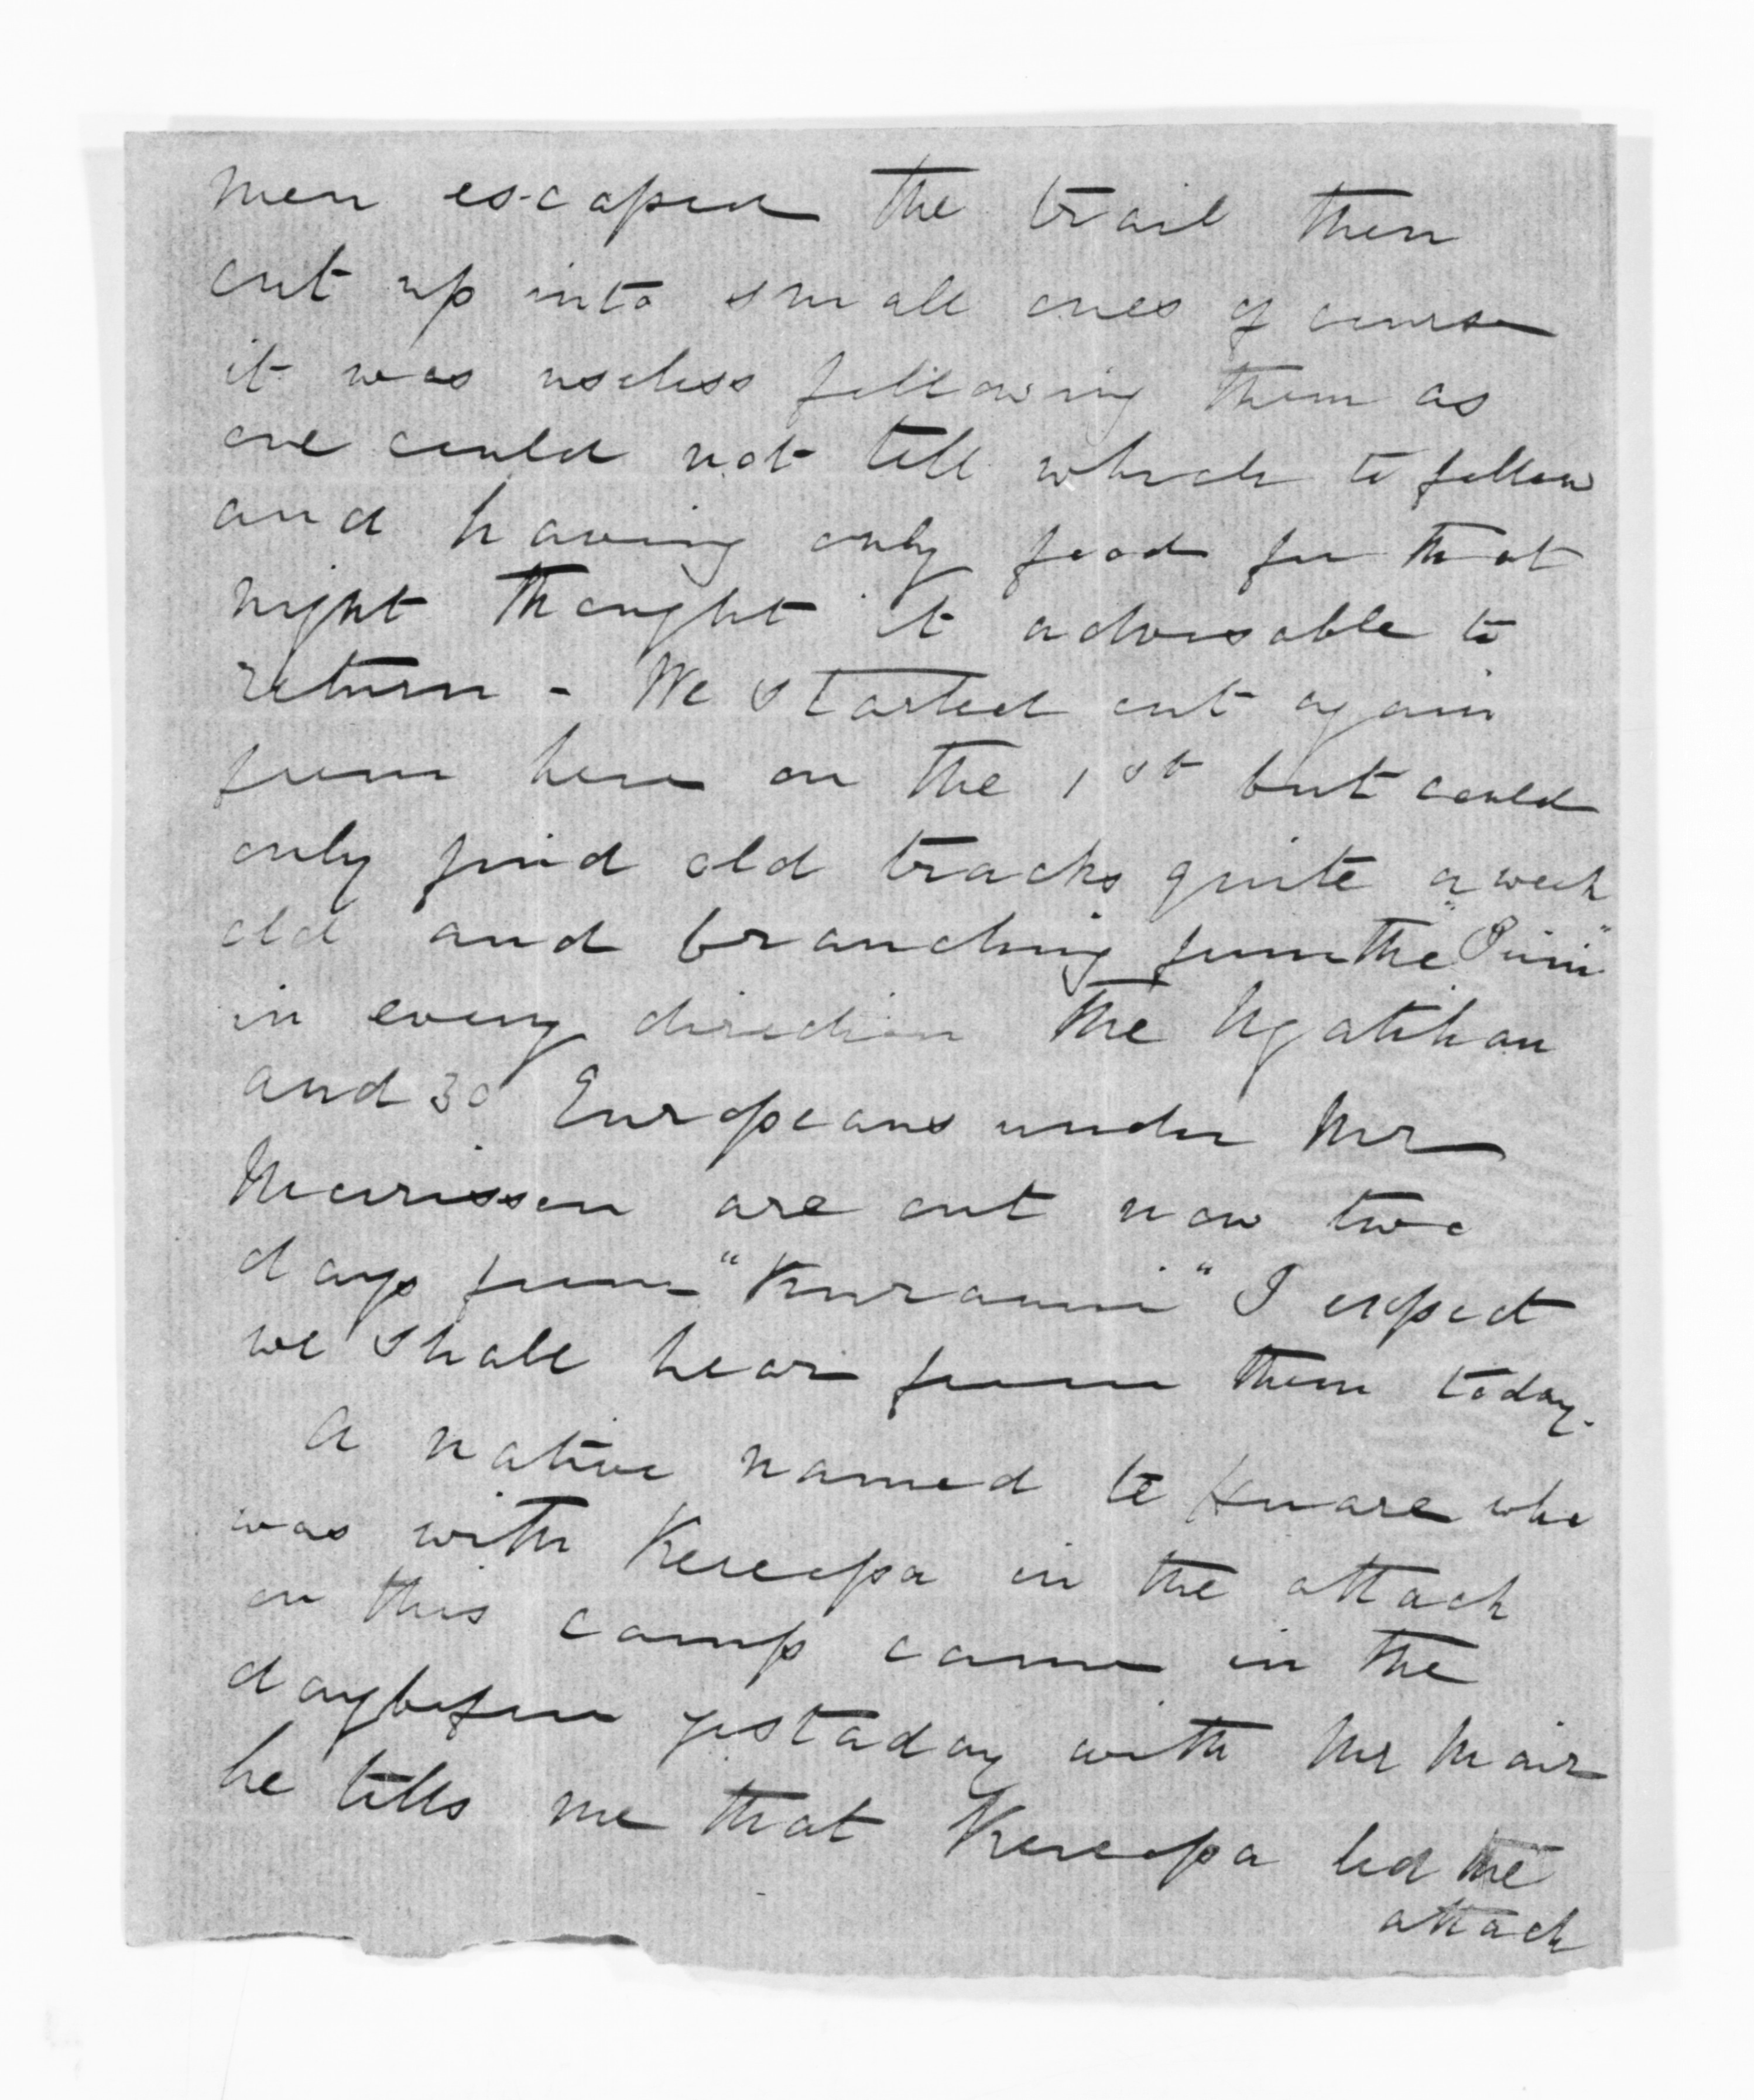 men escaped the trail then
cut up into small ones of course
it was useless following them as
one could not tell which to follow
and having only food for that
night thought it advisable to
return - We started out again
from here on the 1st but could
only find old tracks quite a week
old and branching from the
in every direction The Ngatihau
and 30 Europeans under Mr
Morrison are out now two
days from I expect
we shall hear from them today.
A native named te who
was with Kereopa in the attack
on this camp came in the
day before yestaday with Mr Mair
he tells me that Kereopa led the
attack